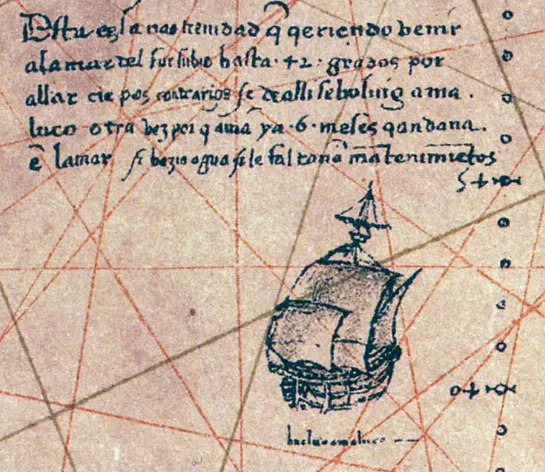 Esta es la nao trenidad q̃ qeriendo benir
a la mar del sur subio hasta · 42 · grados por
allar tiẽpos contrarios e de alli se bolvio a ma .
luco otra bez por q̃ abia ya · 6 · meses q andana
ẽ la mar e se hazia agua e le faltauã mãtenimiẽtos
buelue a maluco